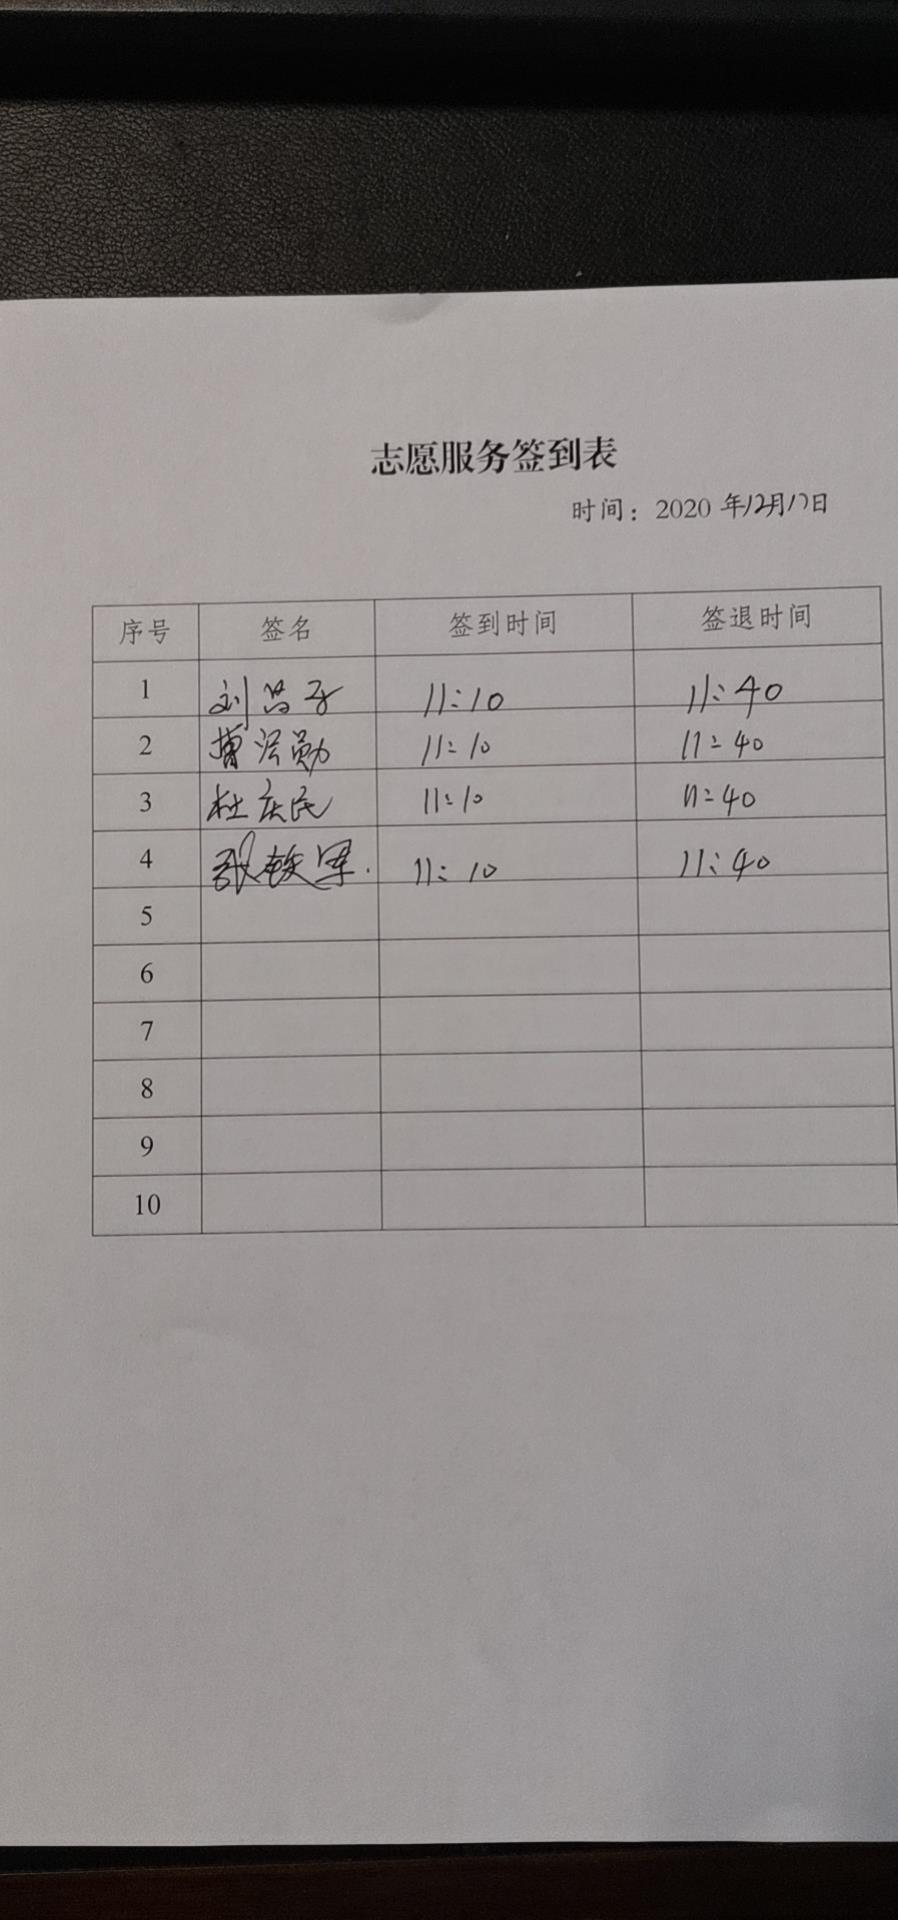 志愿服务签到表
时间：2020年12月17日
序号 签名 签到时间 签退时间
1 刘昌子 11:10 11:40
2 曹洪勋 11:10 11:40
3 杜庆民 11:10 11:40
4 张铁军. 11:10 11:40
5
6
7
8
9
10